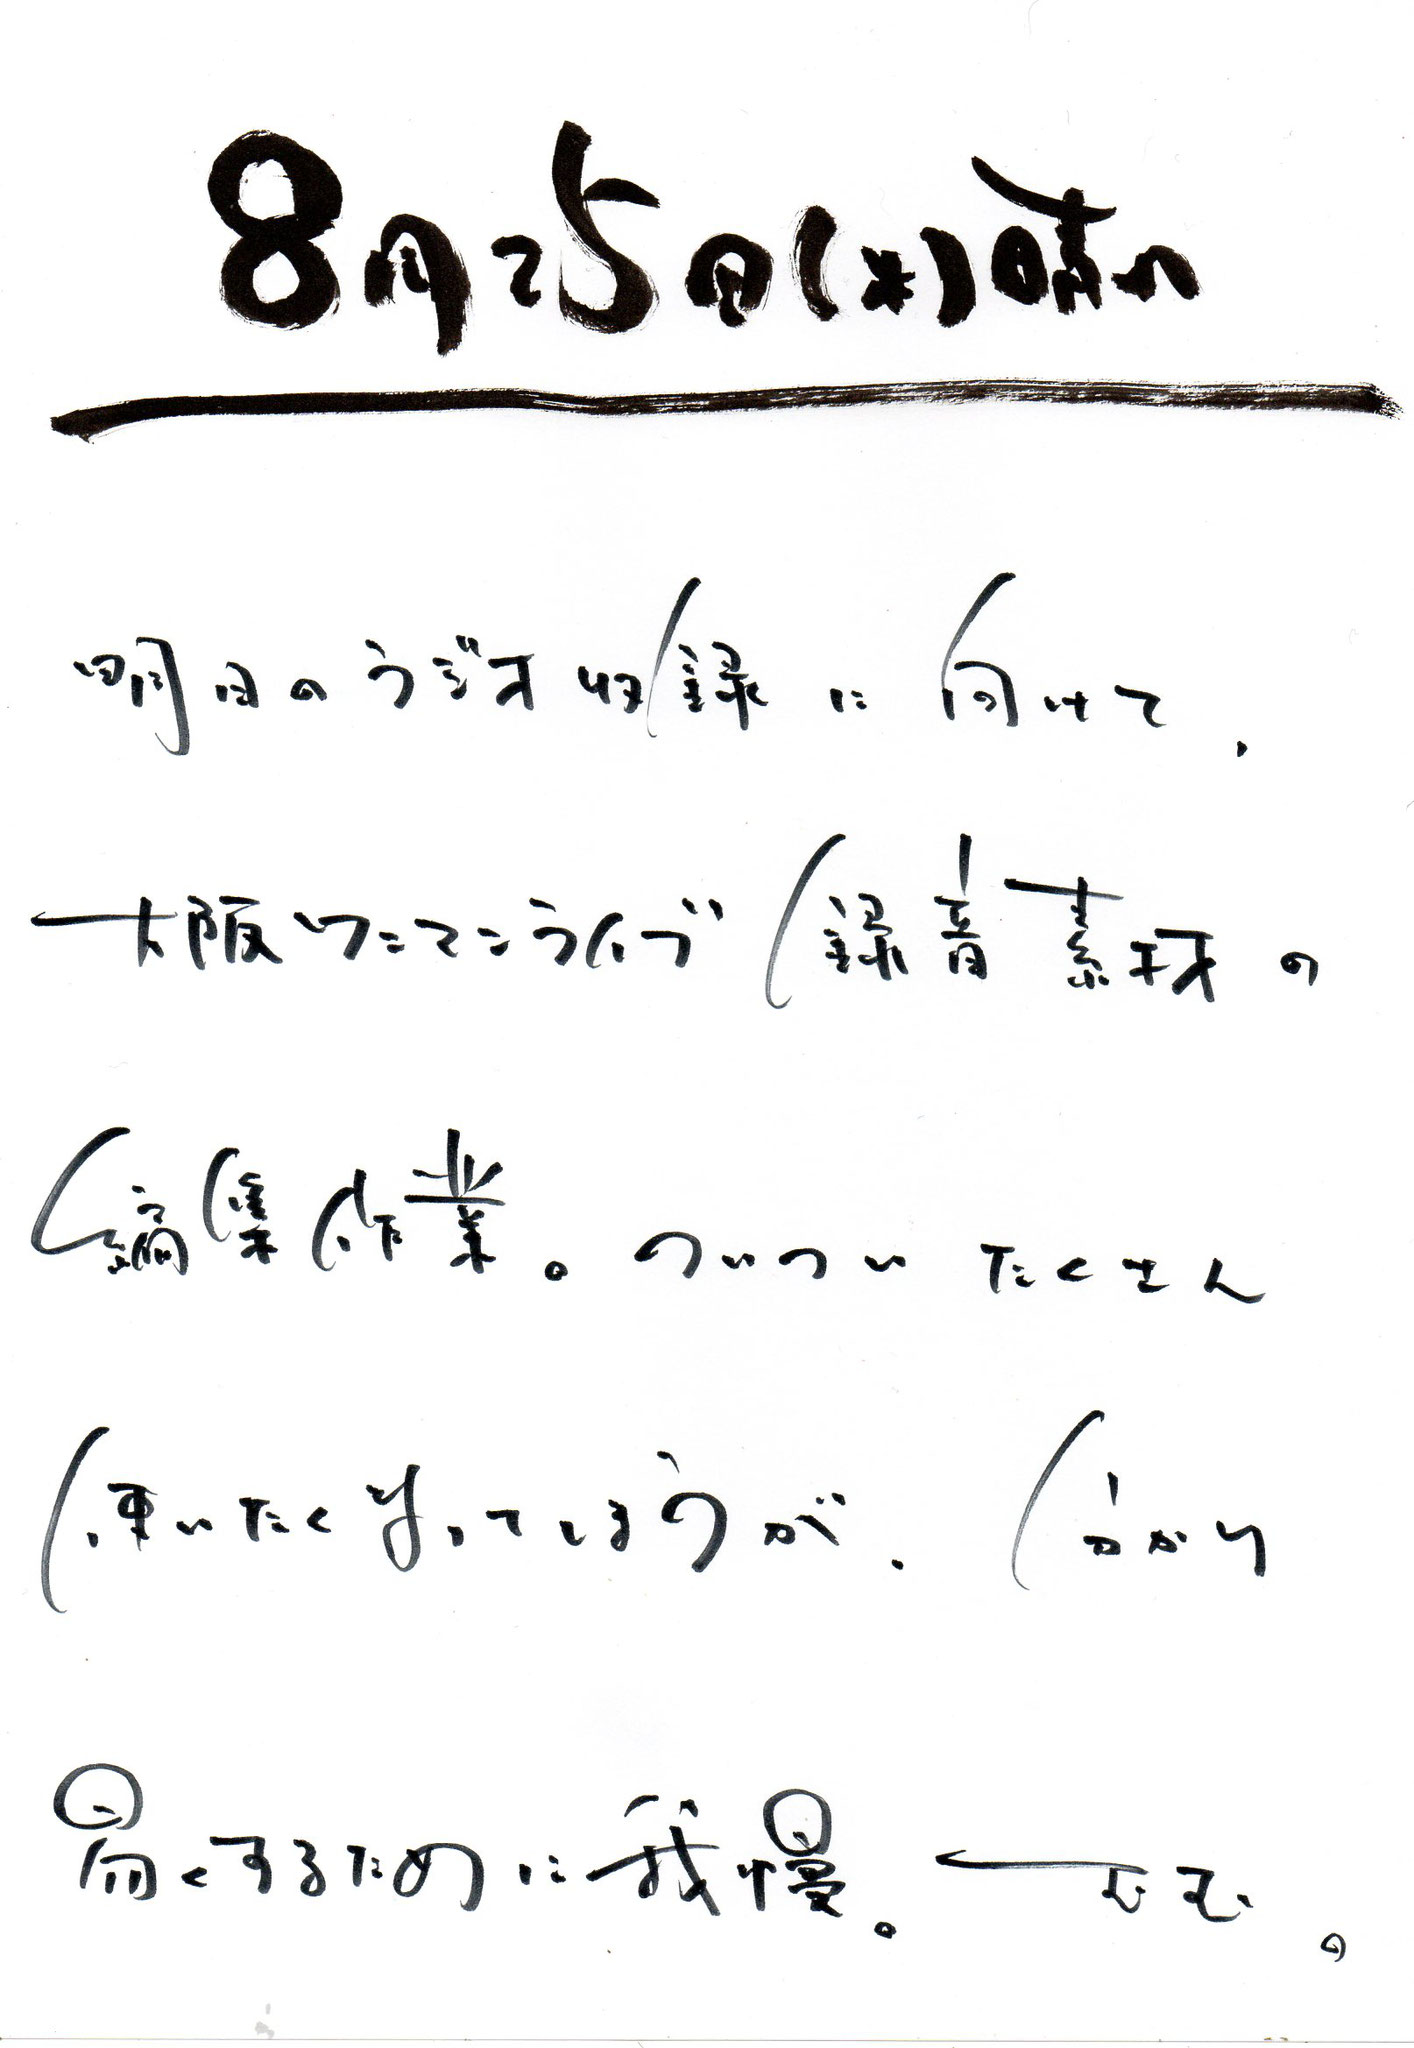 8月25日(水)晴れ
明日のラジオ収録に向けて、
大阪ワンマンライブ録音素材の
編集作業。ついついたくさん
使いたくなってしまうが、分かり
易くするために我慢。むむ。